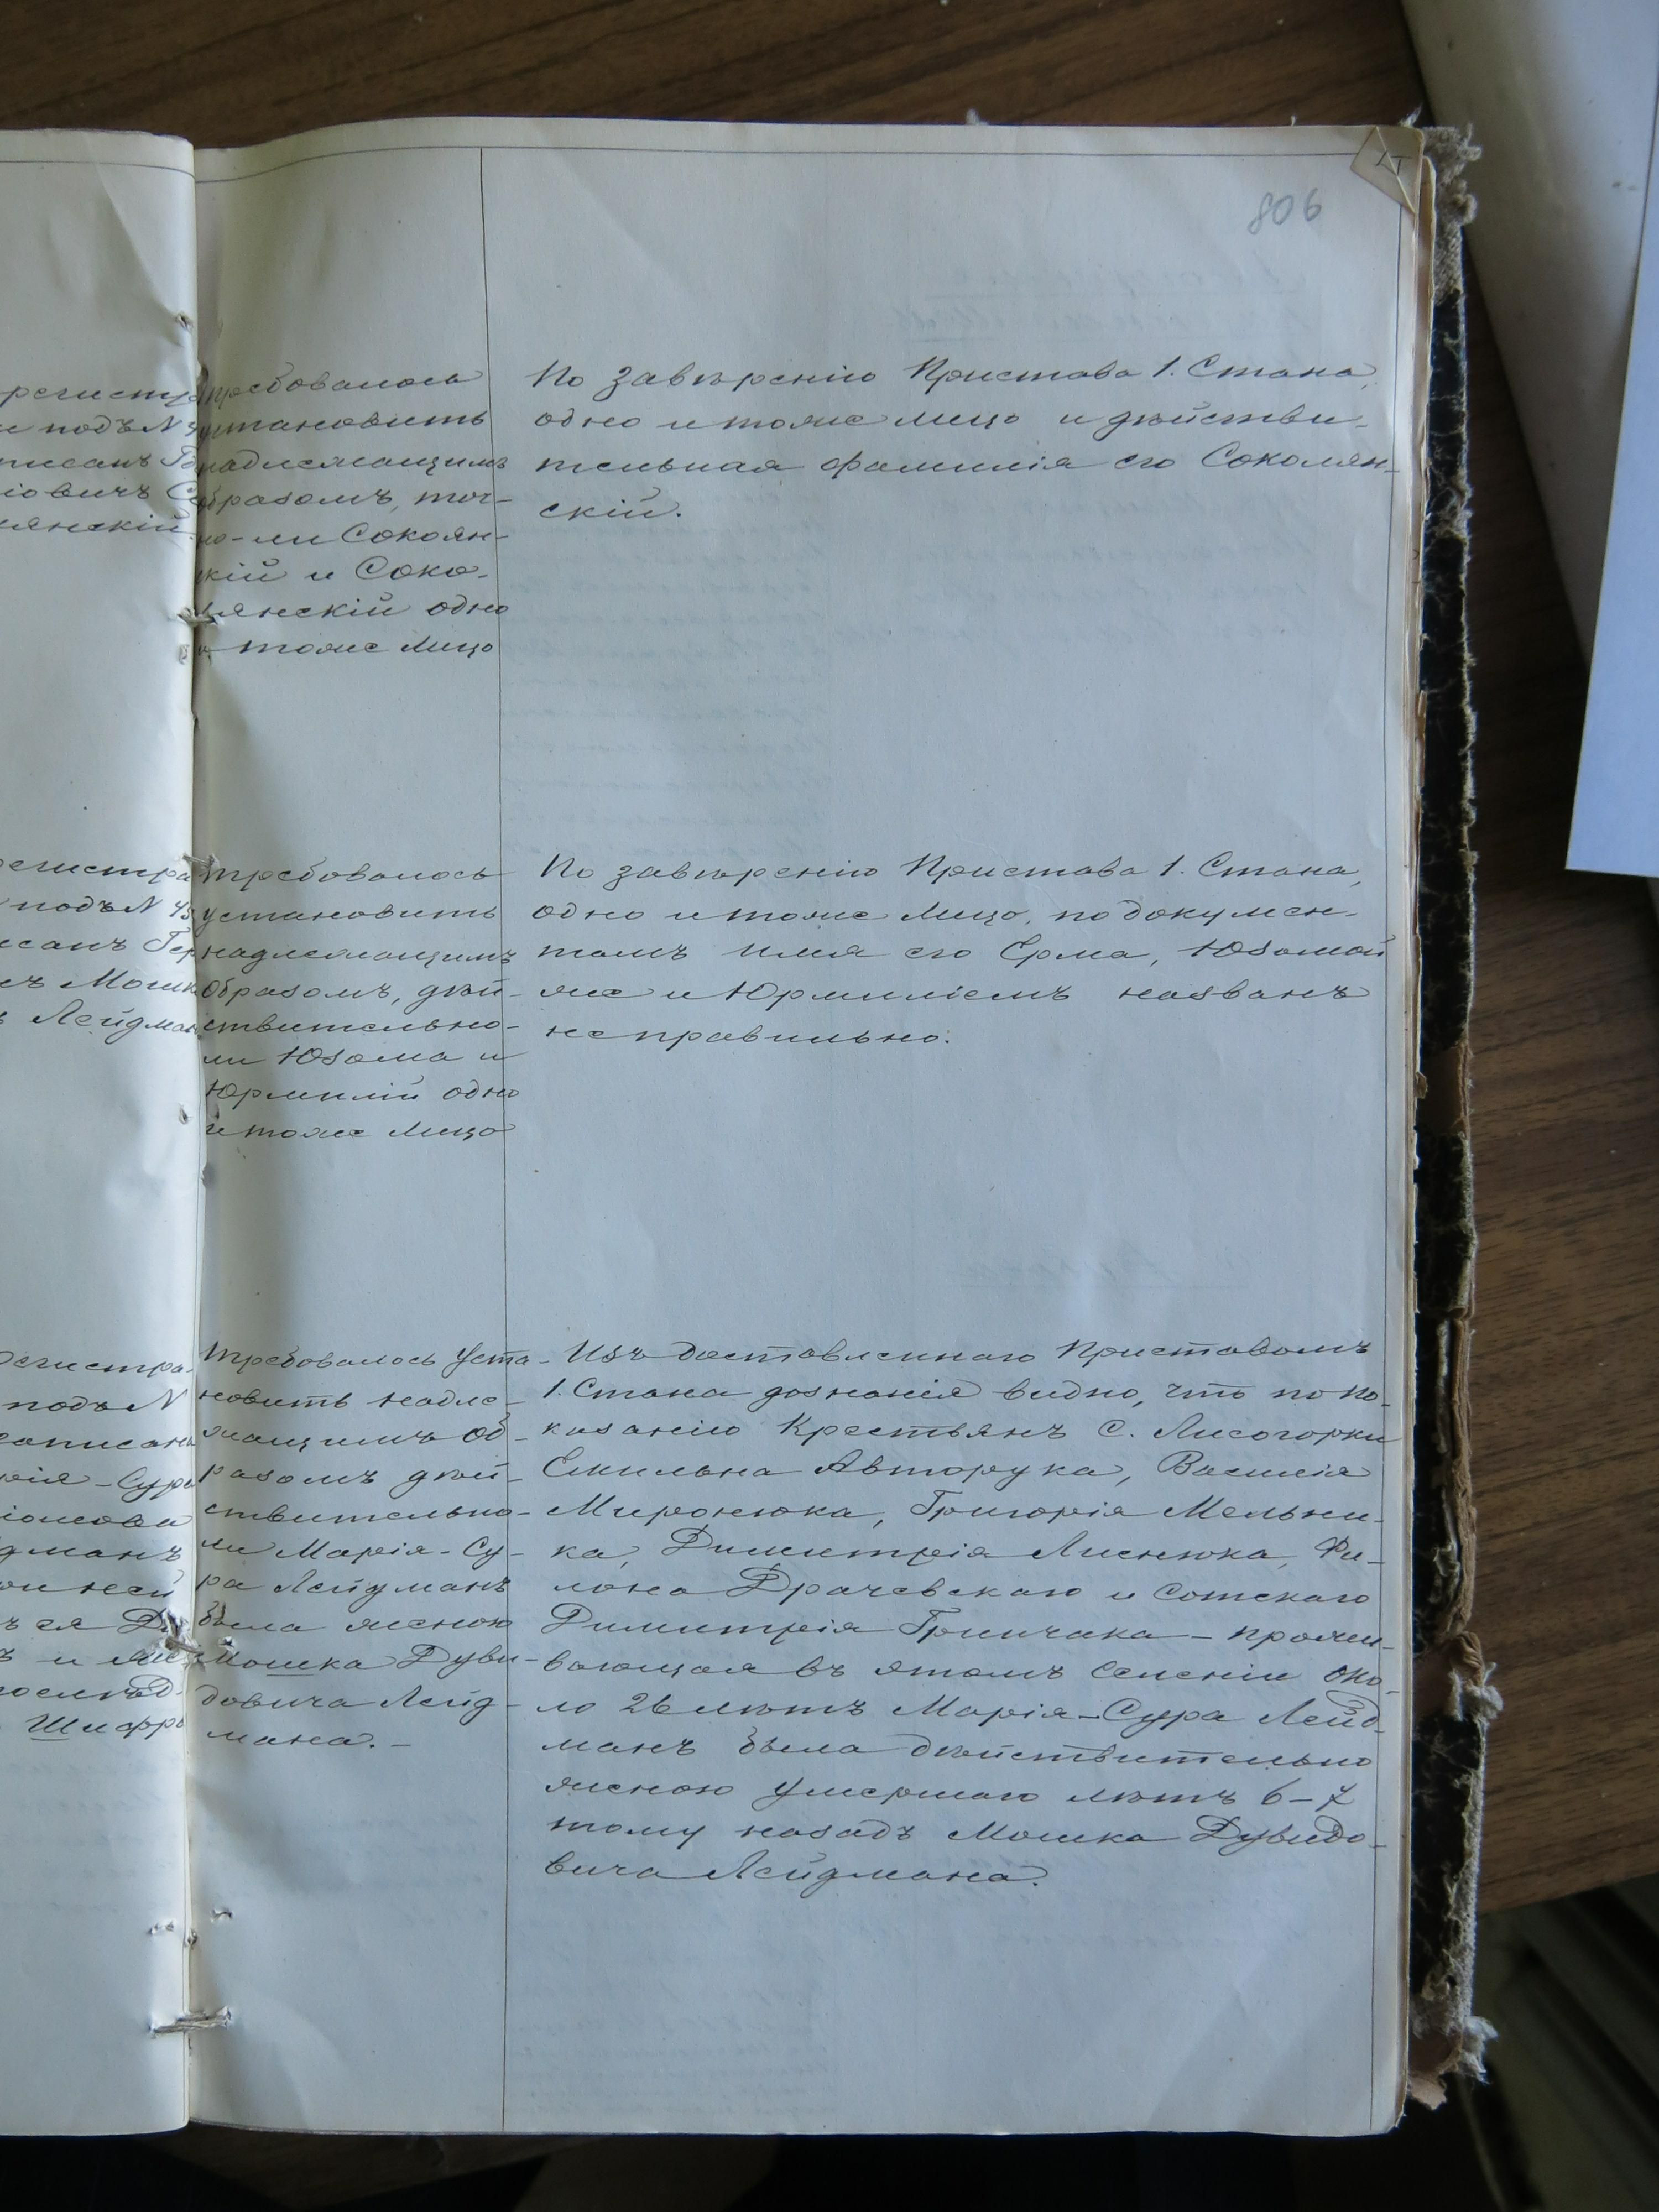 806
регистр
подъ N
писанъ
іовичъ
лянскій
требовалось
установить
надлежащимъ
образомъ, точ-
но-ли Сокоян-
скій и Соко-
лянскій одно
и тоже лицо
По завѣренію Пристава 1. Стана,
одно и тоже лицо и дѣйстви-
тельная фамилія его Соколян-
скій.
регистра
подъ N 43
исанъ Гер
Мошк
Лейдман
требовалось
установить
надлежащимъ
образомъ, дѣй-
ствительно-
ли Юзома и
Юрмилій одно
и тоже лицо
По завѣренію Пристава 1. Стана,
одно и тоже лицо, по докумен-
тамъ имя его Ерма, Юзомой
же и Юрмиліемъ названъ
неправильно.
регистра
подъ N
записана
рія-Сура
дманъ
ней
ъ ея
ъ и
послѣд
Шифр
Требовалось уста-
новить надле-
жащимъ об-
разомъ дѣй-
ствительно-
ли Марія-Су-
ра Лейдманъ
была женою
Мошка Дуви-
довича Лейд-
мана.-
Изъ доставленнаго Приставомъ
1. Стана дознанія видно, что по по-
казанію Крестьянъ с. Лисогорки
Емильяна Авторука, Василія
Миронюка, Григорія Мельни-
ка, Димитрія Лисенюка, Фи-
лона Драчевскаго и Сотскаго
Димитрія Гринчака - прожи-
вающая въ этомъ селеніи око-
ло 26 лѣтъ Марія-Сура Лейд-
манъ была дѣйствительно
женою умершаго лѣтъ 6-7
тому назадъ Мошка Дувидо-
вича Лейдмана.